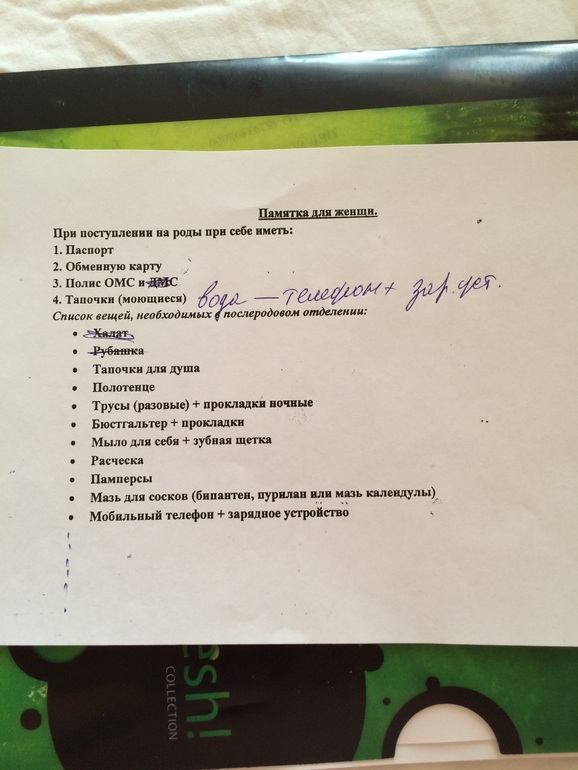 Памятка для женщи.
При поступлении на роды при себе иметь:
1. Паспорт
2. Обменную карту
3. Полис ОМС и ДМС
4. Тапочки (моющиеся) вода — телефон + зар. уст.
Список вещей, необходимых в послеродовом отделении:
• Халат
• Рубашка
• Тапочки для душа
• Полотенце
• Трусы (разовые) + прокладки ночные
• Бюстгальтер + прокладки
• Мыло для себя + зубная щетка
• Расческа
• Памперсы
• Мазь для сосков (бипантен, пурилан или мазь календулы)
• Мобильный телефон + зарядное устройство
eshi
COLLECTION